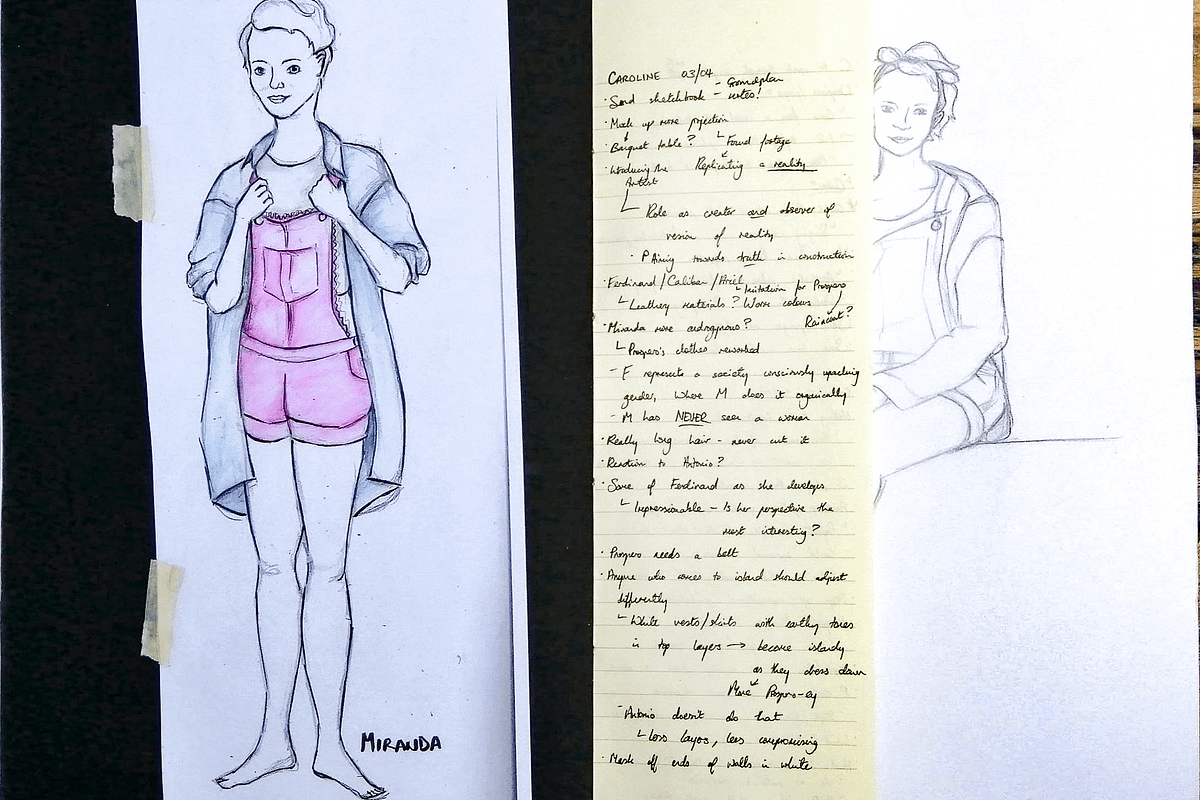 MIRANDA
CAROLINE 03/04
· Send sketchbook - Groundplan
- notes!
· Mock up more projection
· Banquet table? ↳ Found footage
· Introducing the Artist
Replicating a reality
↳ Role as creator and observer of
version of reality
· Aiming towards truth in construction
· Ferdinand/Caliban/Ariel
↳ Imitation for Prospero
↳ Leathery materials? Worn colours
Raincoat?
· Miranda more androgynous?
↳ Prospero's clothes reworked
- F represents a society consciously unpacking
gender, where M does it organically
- M has NEVER seen a woman
· Really long hair - never cut it
· Reaction to Antonio?
· Some of Ferdinand as she develops
↳ Impressionable - Is her perspective the
most interesting?
· Prospero needs a belt
· Anyone who comes to island should adjust
differently
↳ White vests/shirts with earthy tones
in top layers → become islandy
as they dress down
More Prospero-ey
- Antonio doesn't do that
↳ Less layers, less compromising
· Mask off ends of walls in white